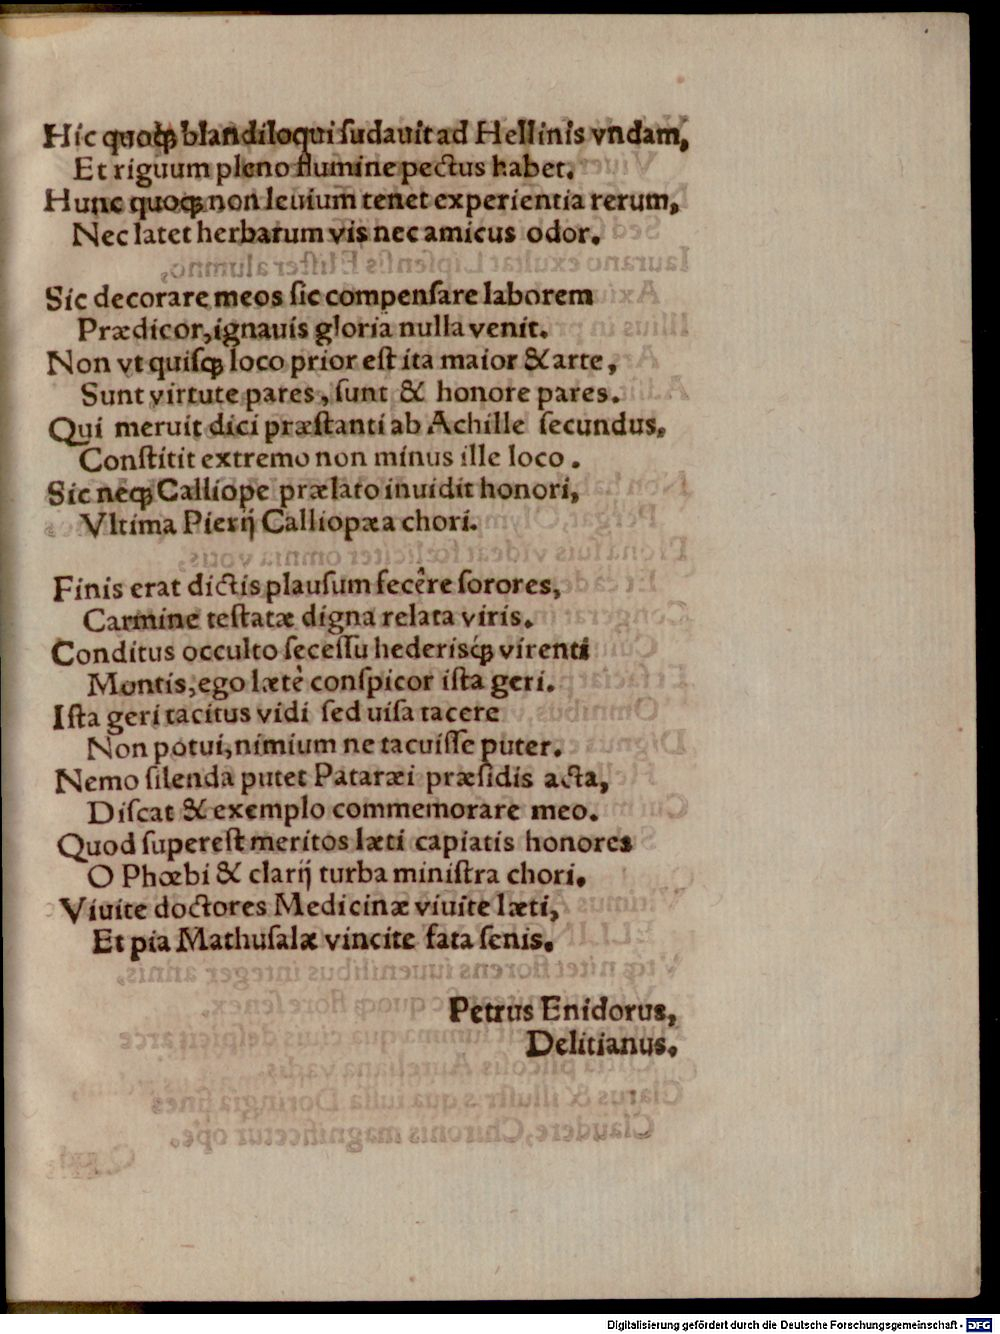 Hic quoqꝫ blandiloqui ſudauit ad Hellinis vndam,
Et riguum pleno flumine pectus habet.
Hunc quoqꝫ non leuium tenet experientia rerum,
Nec latet herbarum vis nec amicus odor.
Sic decorare meos ſic compenſare laborem
Prædicor, ignauis gloria nulla venit.
Non vt quiſqꝫ loco prior eſt ita maior & arte,
Sunt virtute pares, ſunt & honore pares.
Qui meruit dici præſtanti ab Achille ſecundus,
Conſtitit extremo non minus ille loco.
Sic neqꝫ Calliope prælato inuidit honori,
Vltima Pierij Calliopæa chori.
Finis erat dictis plauſum fecêre ſorores,
Carmine teſtatæ digna relata viris.
Conditus occulto ſeceſſu hederiſq́ꝫ virenti
Montis, ego lætè conſpicor iſta geri.
Iſta geri tacitus vidi ſed uiſa tacere
Non potui, nimium ne tacuiſſe puter.
Nemo ſilenda putet Pataræi præſidis acta,
Diſcat & exemplo commemorare meo.
Quod ſupereſt meritos læti capiatis honores
O Phœbi & clarij turba miniſtra chori.
Viuite doctores Medicinæ viuite læti,
Et pia Mathuſalæ vincite fata ſenis.
Petrus Enidorus,
Delitianus.
Digitalisierung gefördert durch die Deutsche Forschungsgemeinschaft - DFG